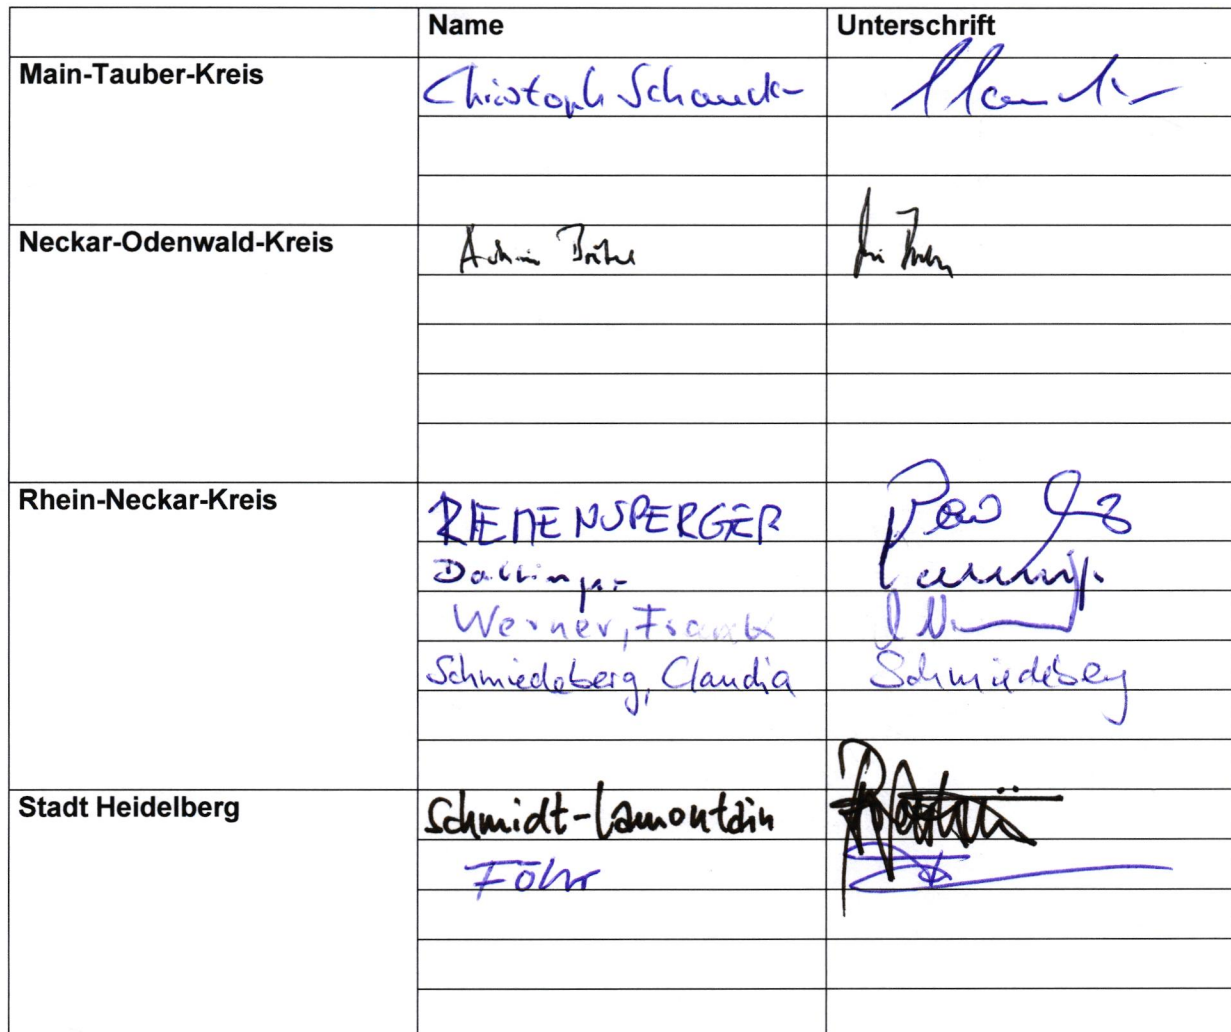 Name Unterschrift
Main-Tauber-Kreis Christoph Schauder
Neckar-Odenwald-Kreis Achim Brötel
Rhein-Neckar-Kreis REMENSPERGER
Dallinger
Werner, Frank
Schmiedeberg, Claudia Schmiedeberg
Stadt Heidelberg Schmidt-Lamontain
Föhr